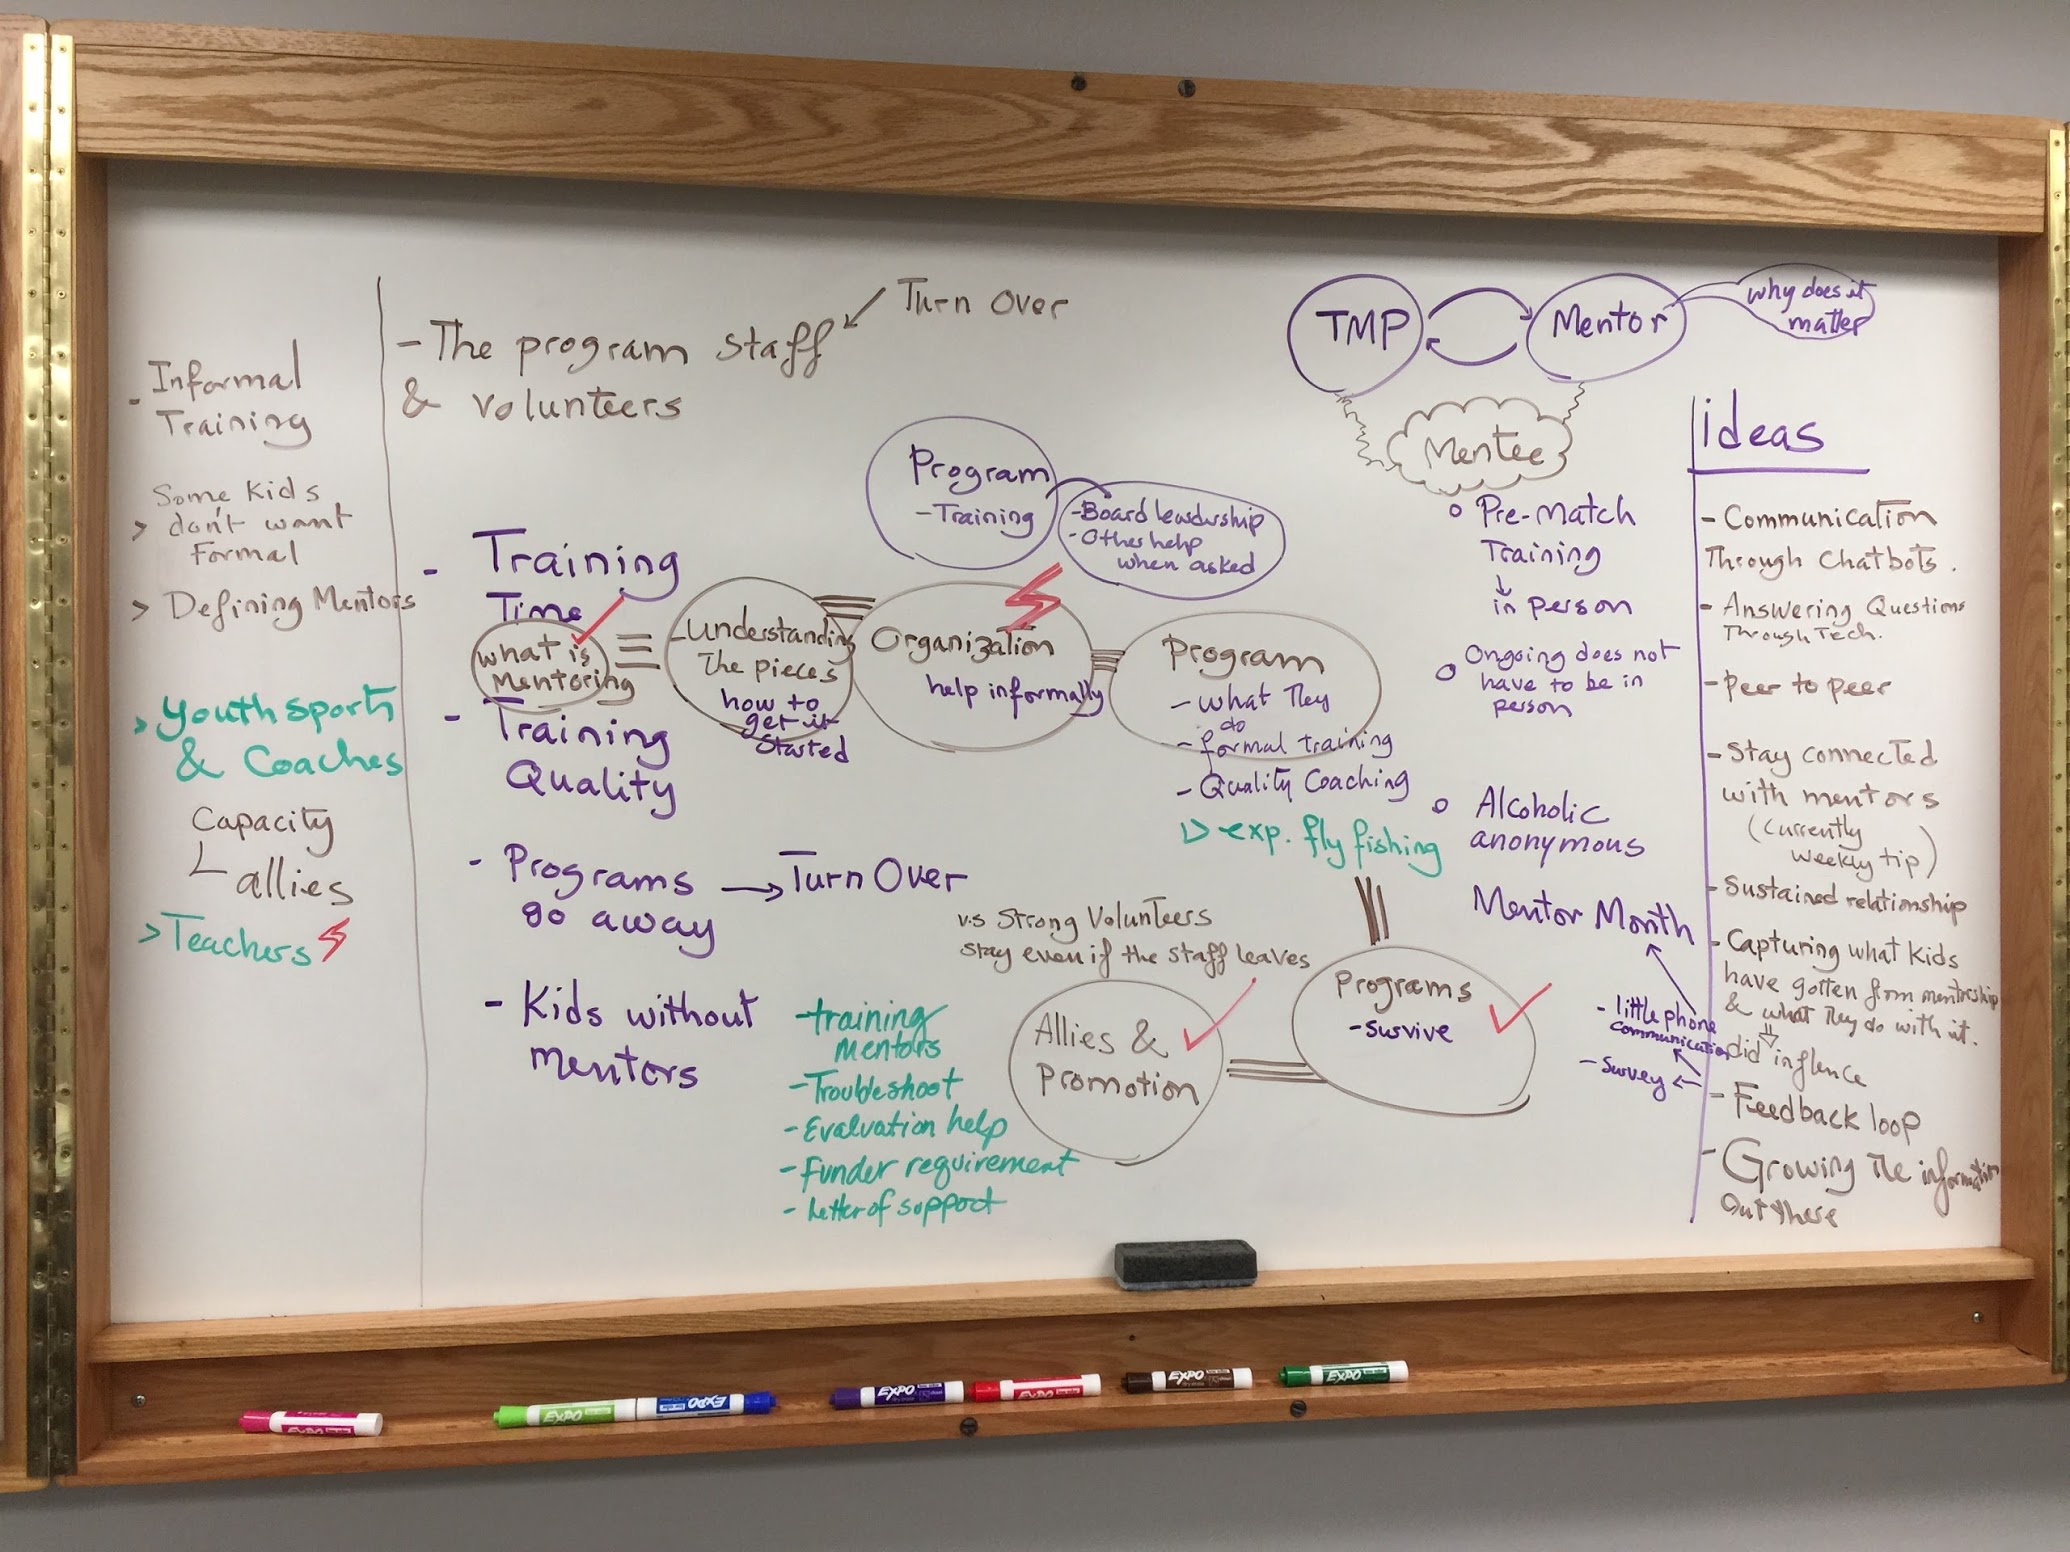 - Informal
Training
Some kids
> don't want
Formal
> Defining Mentors
> Youth sports
& Coaches
Capacity
allies
> Teachers
- The program staff
& volunteers
Turn Over
- Training
Time
what is
Mentoring
- Training
Quality
- Programs
go away
Turn Over
- Kids without
mentors
- Understanding
The pieces
how to
get it
started
Organization
help informally
Program
- Training
- Board leadership
- Other help
when asked
Program
- what They
do
- formal training
- Quality Coaching
exp. fly fishing
Programs
- survive
v.s Strong Volunteers
stay even if the staff leaves
Allies &
Promotion
- training
mentors
- Troubleshoot
- Evaluation help
- Funder requirement
- Letter of support
TMP
Mentor
why does it
matter
Mentee
Pre-Match
Training
in person
Ongoing does not
have to be in
person
Alcoholic
anonymous
Mentor Month
- little phone
communication
- Survey
ideas
- Communication
Through Chatbots.
- Answering Questions
Through Tech.
- Peer to peer
- Stay connected
with mentors
(Currently
weekly tip)
- Sustained relationship
- Capturing what kids
have gotten from mentorship
& what They do with it.
did influence
- Feedback loop
- Growing The information
out there
EXPO
EXPO
EXPO
EXPO
EXPO
EXPO